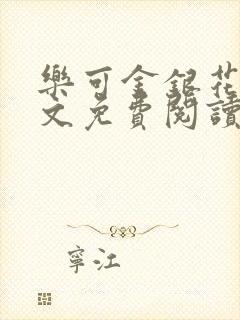 樂可金銀花
文免費閱讀
寧江